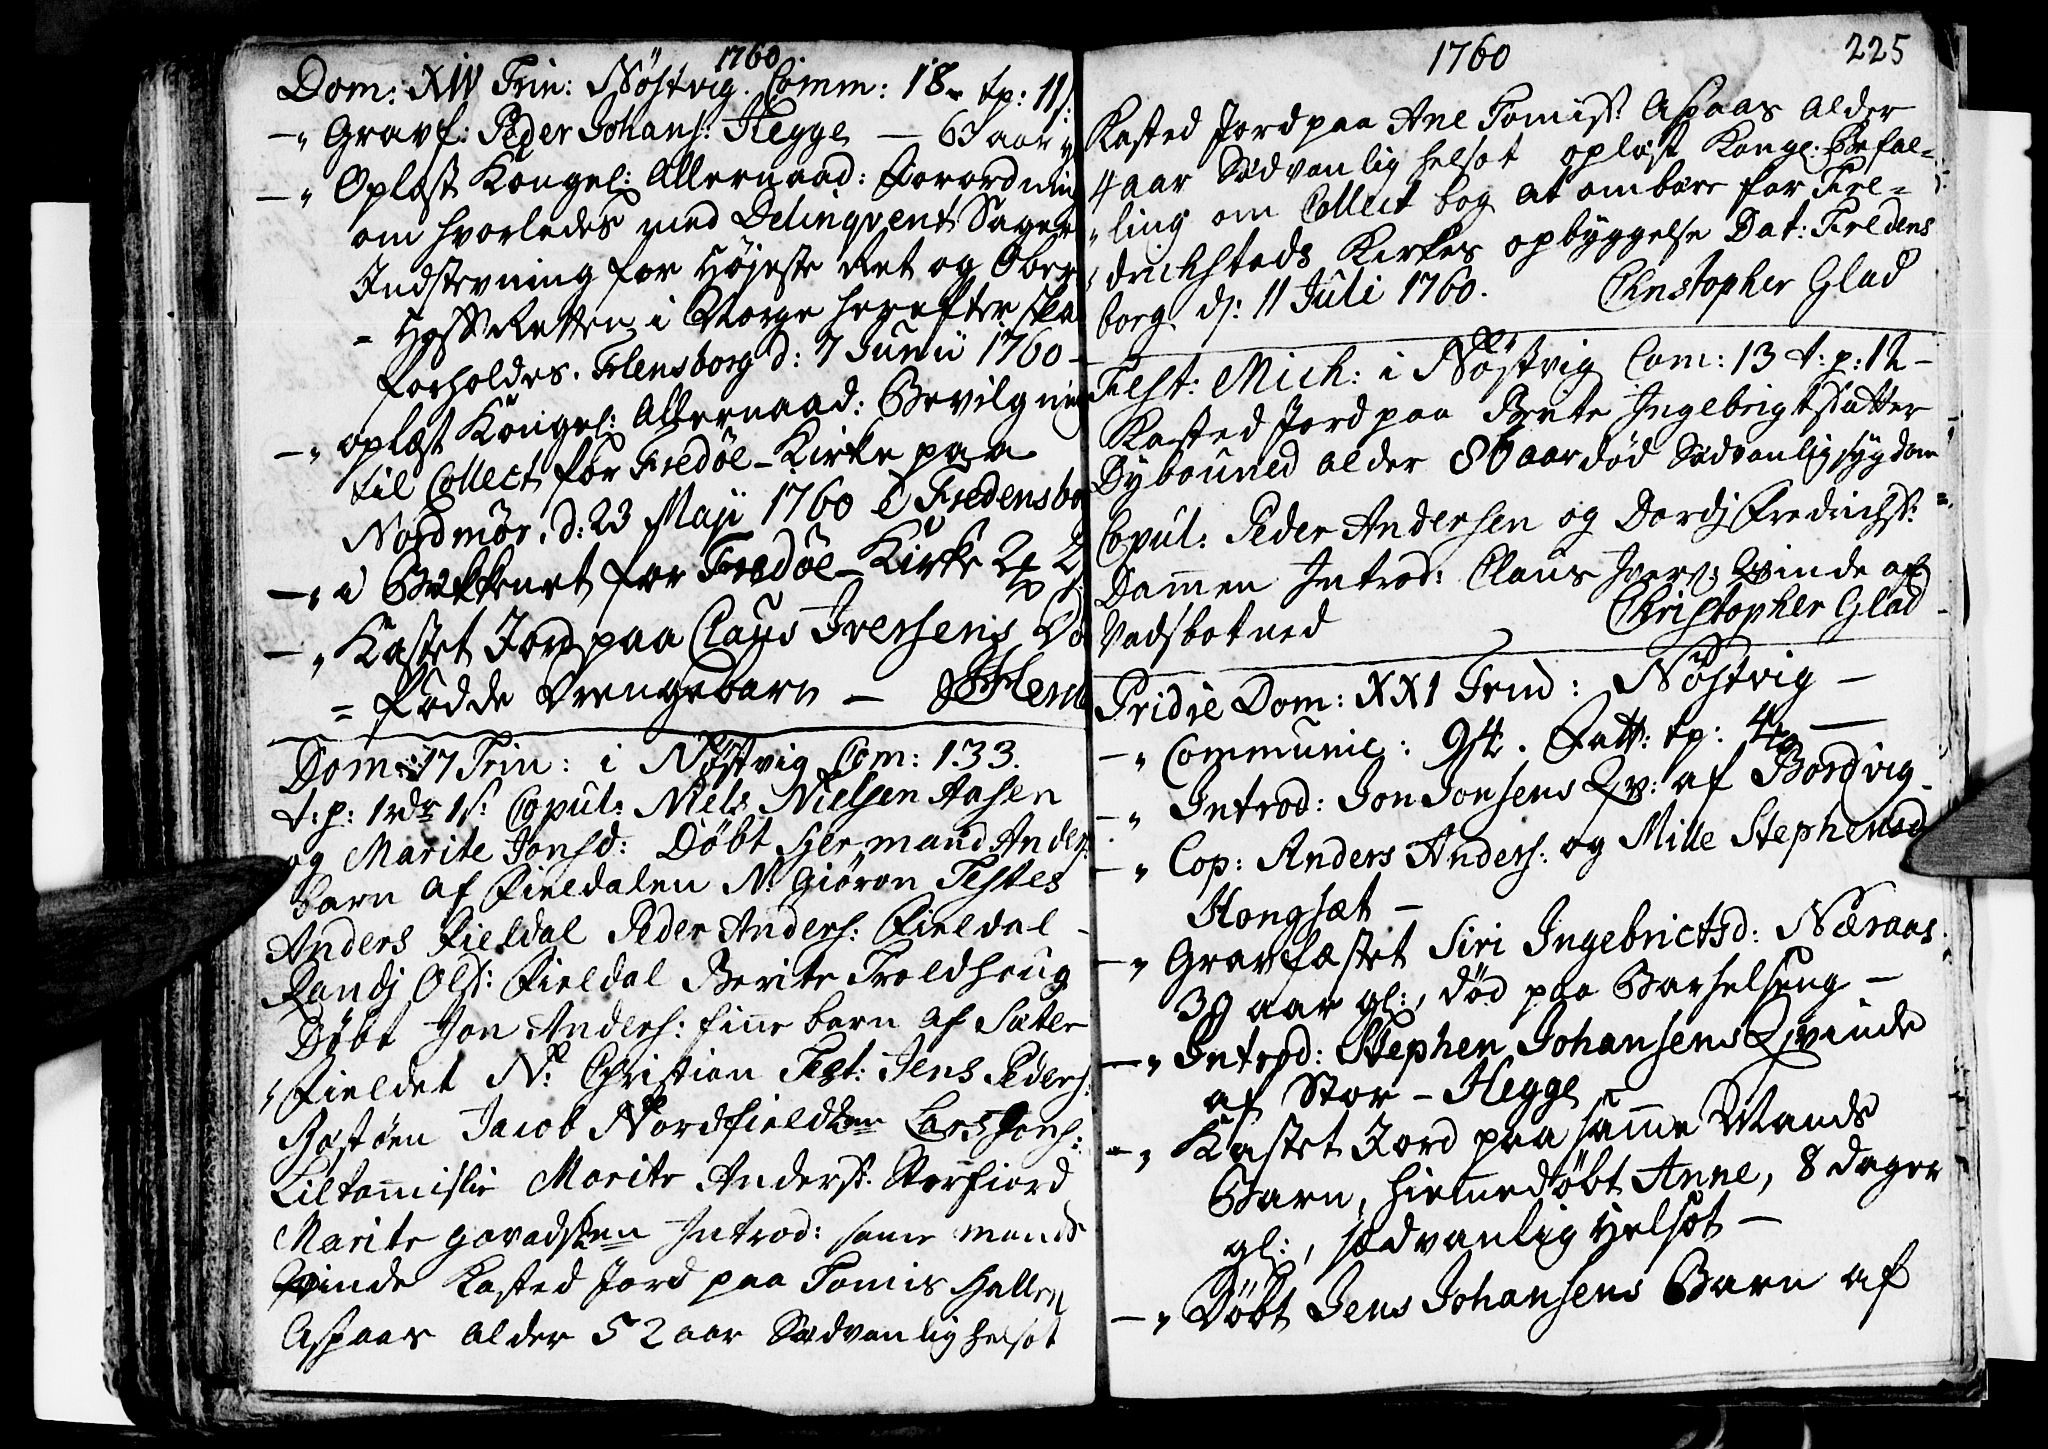 1760
Dom: XIV Trin: Nøstvig. Comm: 18. tp: 11
Gravf: Peder Johans: Hegge — 6 aar
Oplæst Kongel: Allernaad: Forordning
om hvorledes med Delinqvent Sager
Indstevning for Højeste Ret og Ober
= HoffRetten i Norge herefter ska
forholdes. Flensborg d: 7 Junii 1760 —
oplæst Kongel: Allernaad: Bevilgning
til Collect for Fredøe-Kirke paa
Nordmør. d: 23 Maji 1760 Fredensbo
i Bekkenet for Fredøe-Kirke
Kastet Jord paa Claus Iversens
= fødde Drengebarn —
Dom: 17 Trin: i Nøstvig Com: 133.
t: p: 1 rdr 1 s: Copul: Niels Nielsen Aasen
og Marite Jonsd: Døbt Hermand Anders:
barn af Fieldalen N: Giøron Testes
Anders Fieldal Peder Anders: Fieldal —
Randj Olsd: Fieldal Berite Troldhoug
Døbt Jon Anders: finne barn af Sæter
Fieldet N: Christian Test: Jens Peders:
Jacob Nordfieldken Lars Jons:
Liltommislie Marite Andersd: Storfiord
Marite gavadsken Introd: same mands
Qvinde Kasted Jord paa Tomis Hallen
Aspaas alder 52 aar Sædvanlig helsot
1760
225
Kasted Jord paa Ane Tomisd: Aspaas alder
4 aar Sædvanlig helsot oplæst Kongl: Befal=
ling om Collect bog at ombære for Fre=
drichstads Kirkes opbyggelse Dat: Fredens
borg d: 11 Juli 1760. Christopher Glad
Fest: Mich: i Nøstvig Com: 13 t: p: 12 —
Kasted Jord paa Berite Ingebrigtsdatter
Dybouned alder 86 aar død Sædvanlig sygdom
Copul: Peder Andersen og Dordj Fredrichsd:
Dammen Introd: Claus Ivers: Qvinde af
Vadsbotned Christopher Glad
Pridie Dom: XXI Trin: Nøstvig —
Communic: 94. Fatt: tp: 4
Introd: Jon Jonsens Qv: af Bordvig
Cop: Anders Anders: og Mille Stephensd
Hongsæt —
Gravfæstet Siri Ingebrictsd: Næraas
39 aar gl:, død paa Barselseng —
Introd: Stephen Johansens Qvinde
af Stor-Hegge
Kastet Jord paa samme Mands
Barn, hiemmedøbt Anne, 8 dager
gl:, sædvanlig Helsot —
Døbt Jens Johansens Barn af